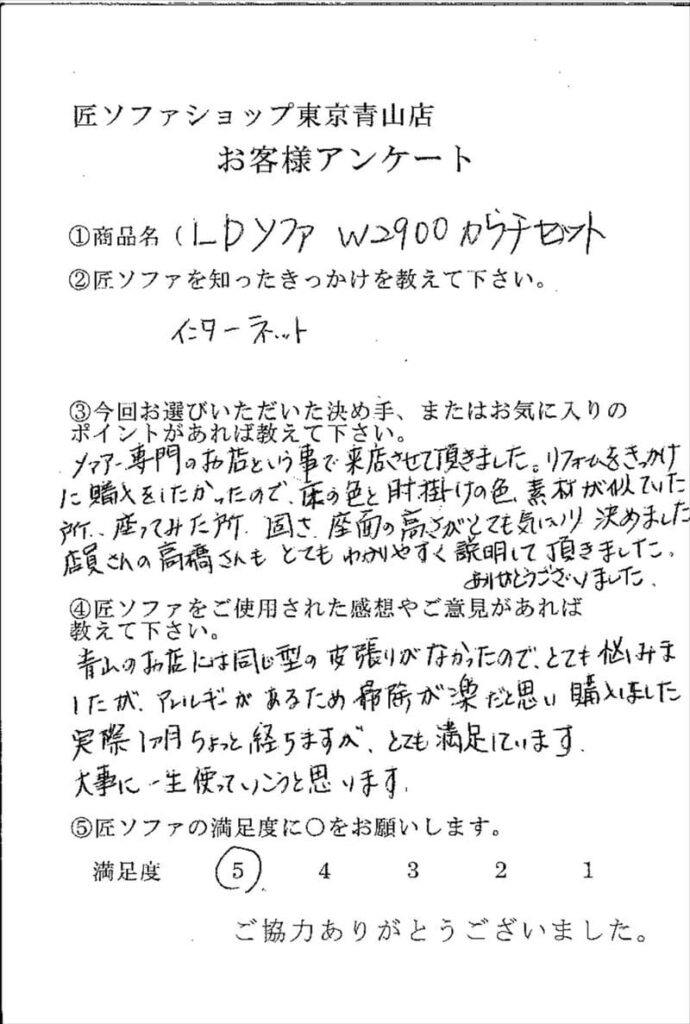 匠ソファショップ東京青山店
お客様アンケート
①商品名（LDソファ W2900 カウチセット
②匠ソファを知ったきっかけを教えて下さい。
インターネット
③今回お選びいただいた決め手、またはお気に入りの
ポイントがあれば教えて下さい。
ソファー専門のお店という事で来店させて頂きました。リフォームをきっかけ
に購入をしたかったので、床の色と肘掛けの色、素材が似ていた
所、座ってみた所、固さ、座面の高さがとても気に入り 決めました
店員さんの高橋さんも とてもわかりやすく説明して頂きました。
ありがとうございました。
④匠ソファをご使用された感想やご意見があれば
教えて下さい。
青山のお店には同じ型の皮張りがなかったので、とても悩みま
したが、アレルギーがあるため掃除が楽だと思い購入しました
実際1ヶ月ちょっと経ちますが、とても満足しています。
大事に一生使っていこうと思います。
⑤匠ソファの満足度に〇をお願いします。
満足度 5 4 3 2 1
ご協力ありがとうございました。